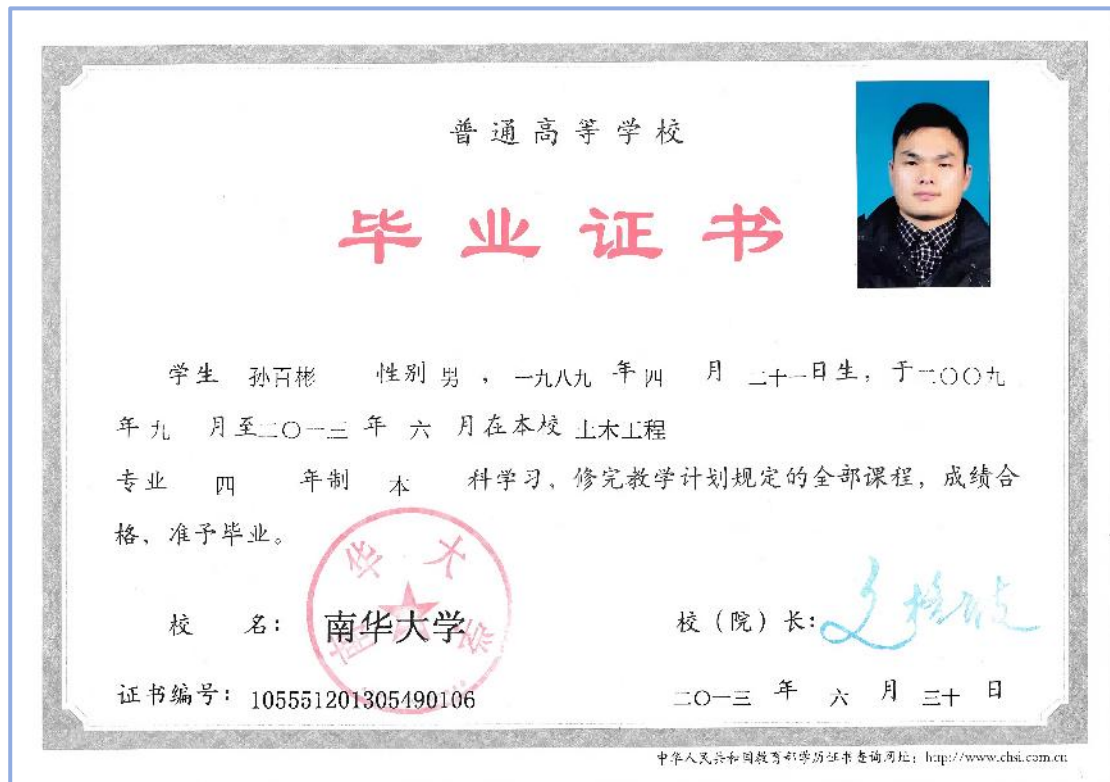 普通高等学校
毕业证书
学生 孙百彬 性别 男 ，一九八九 年 四 月 二十一日生，于二〇〇九
年 九 月至二〇一三 年 六 月在本校 土木工程
专业 四 年制 本 科学习，修完教学计划规定的全部课程，成绩合
格，准予毕业。
南华大学
校 名： 南华大学 校（院）长：
证书编号：105551201305490106 二〇一三 年 六 月 三十 日
中华人民共和国教育部学历证书查询网址：http://www.chsi.com.cn